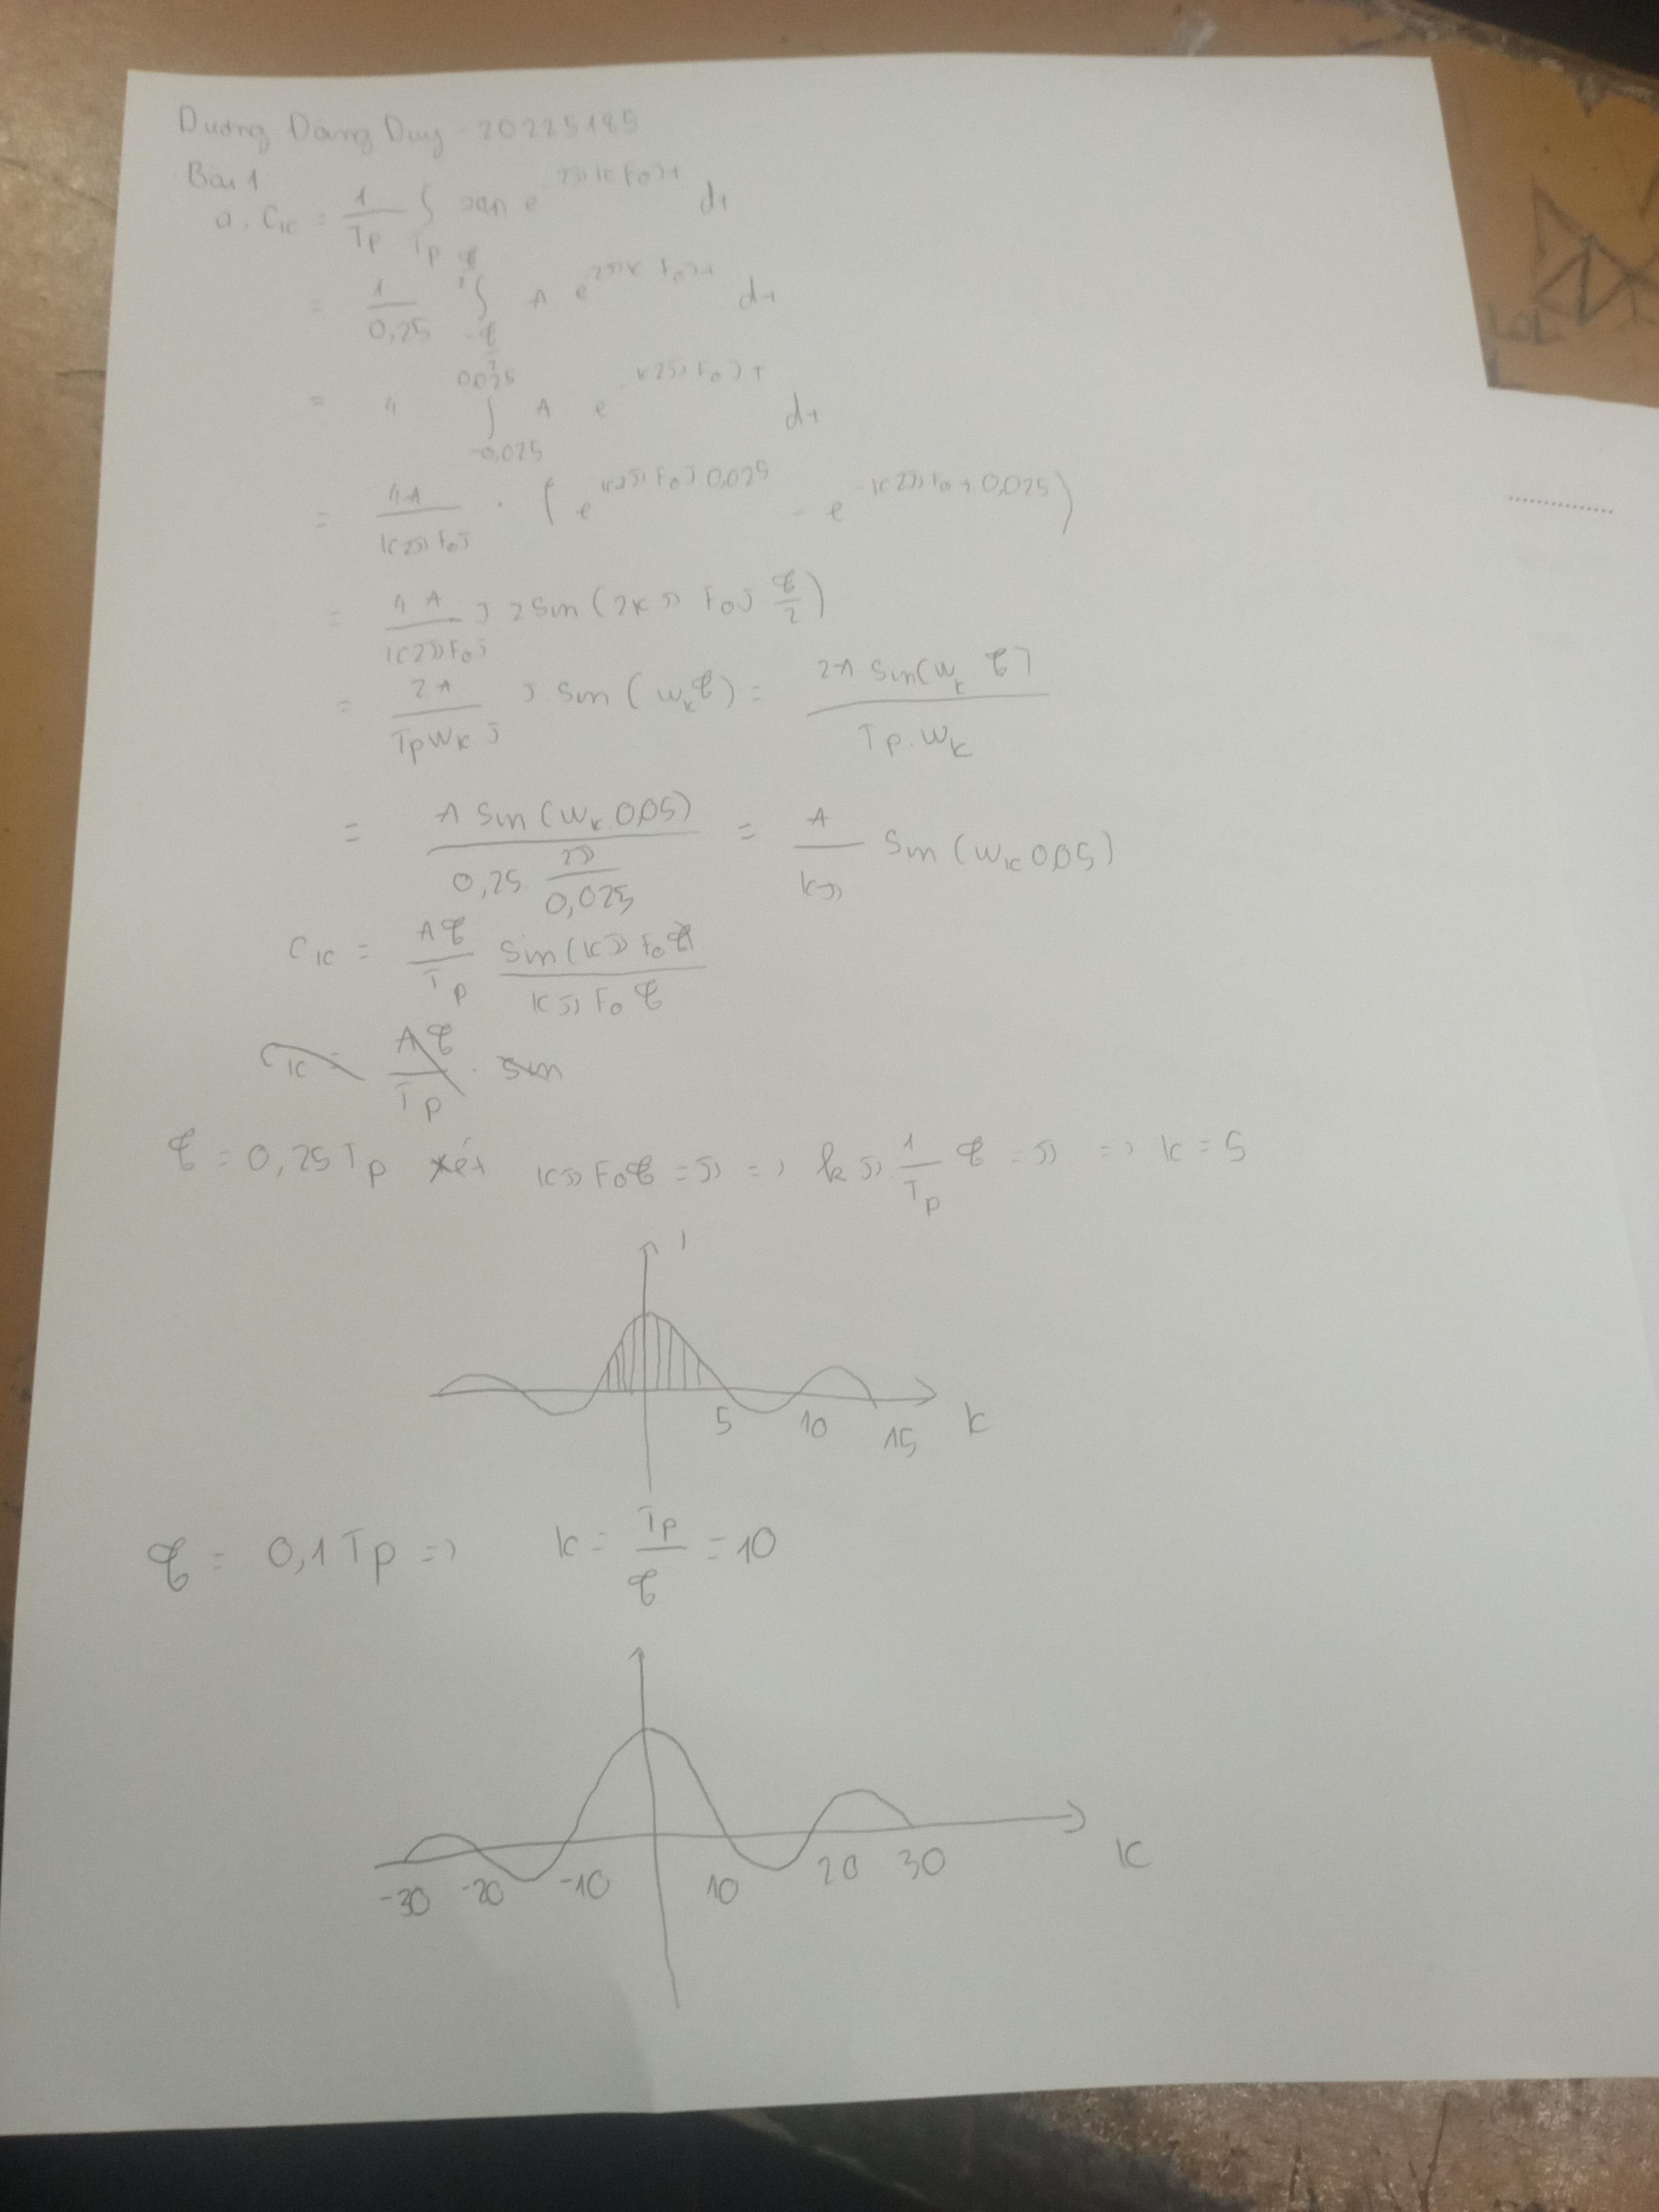 Dương Đăng Duy - 20225185
Bài 1
a. C_k = 1/T_p ∫_{T_p} x(t) e^{-2πkF_0jt} dt
= 1/0,25 ∫_{-τ/2}^{τ/2} A e^{-2πkF_0jt} dt
= 4 ∫_{-0,025}^{0,025} A e^{-k2πF_0jt} dt
= 4A/(k2πF_0j) · (e^{k2πF_0j0,025} - e^{-k2πF_0j.0,025})
= 4A/(k2πF_0j) j 2 sin(2kπF_0j τ/2)
= 2A/(T_pω_kj) j sin(ω_kτ) = 2A sin(ω_k τ)/(T_p.ω_k)
= A sin(ω_k 0,05)/(0,25 2π/0,025) = A/(kπ) sin(ω_k 0,05)
C_k = Aτ/T_p sin(kπF_0τ)/(kπF_0τ)
C_k = Aτ/T_p . sin
τ = 0,25T_p xét kπF_0τ = π => kπ 1/T_p τ = π => k = 5
5 10 15 k
τ = 0,1T_p => k = T_p/τ = 10
-30 -20 -10 10 20 30 k